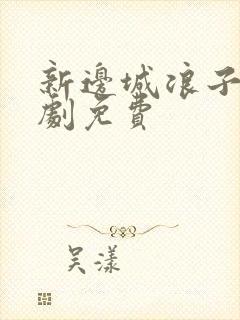 新邊城浪子
劇免費
吴漾